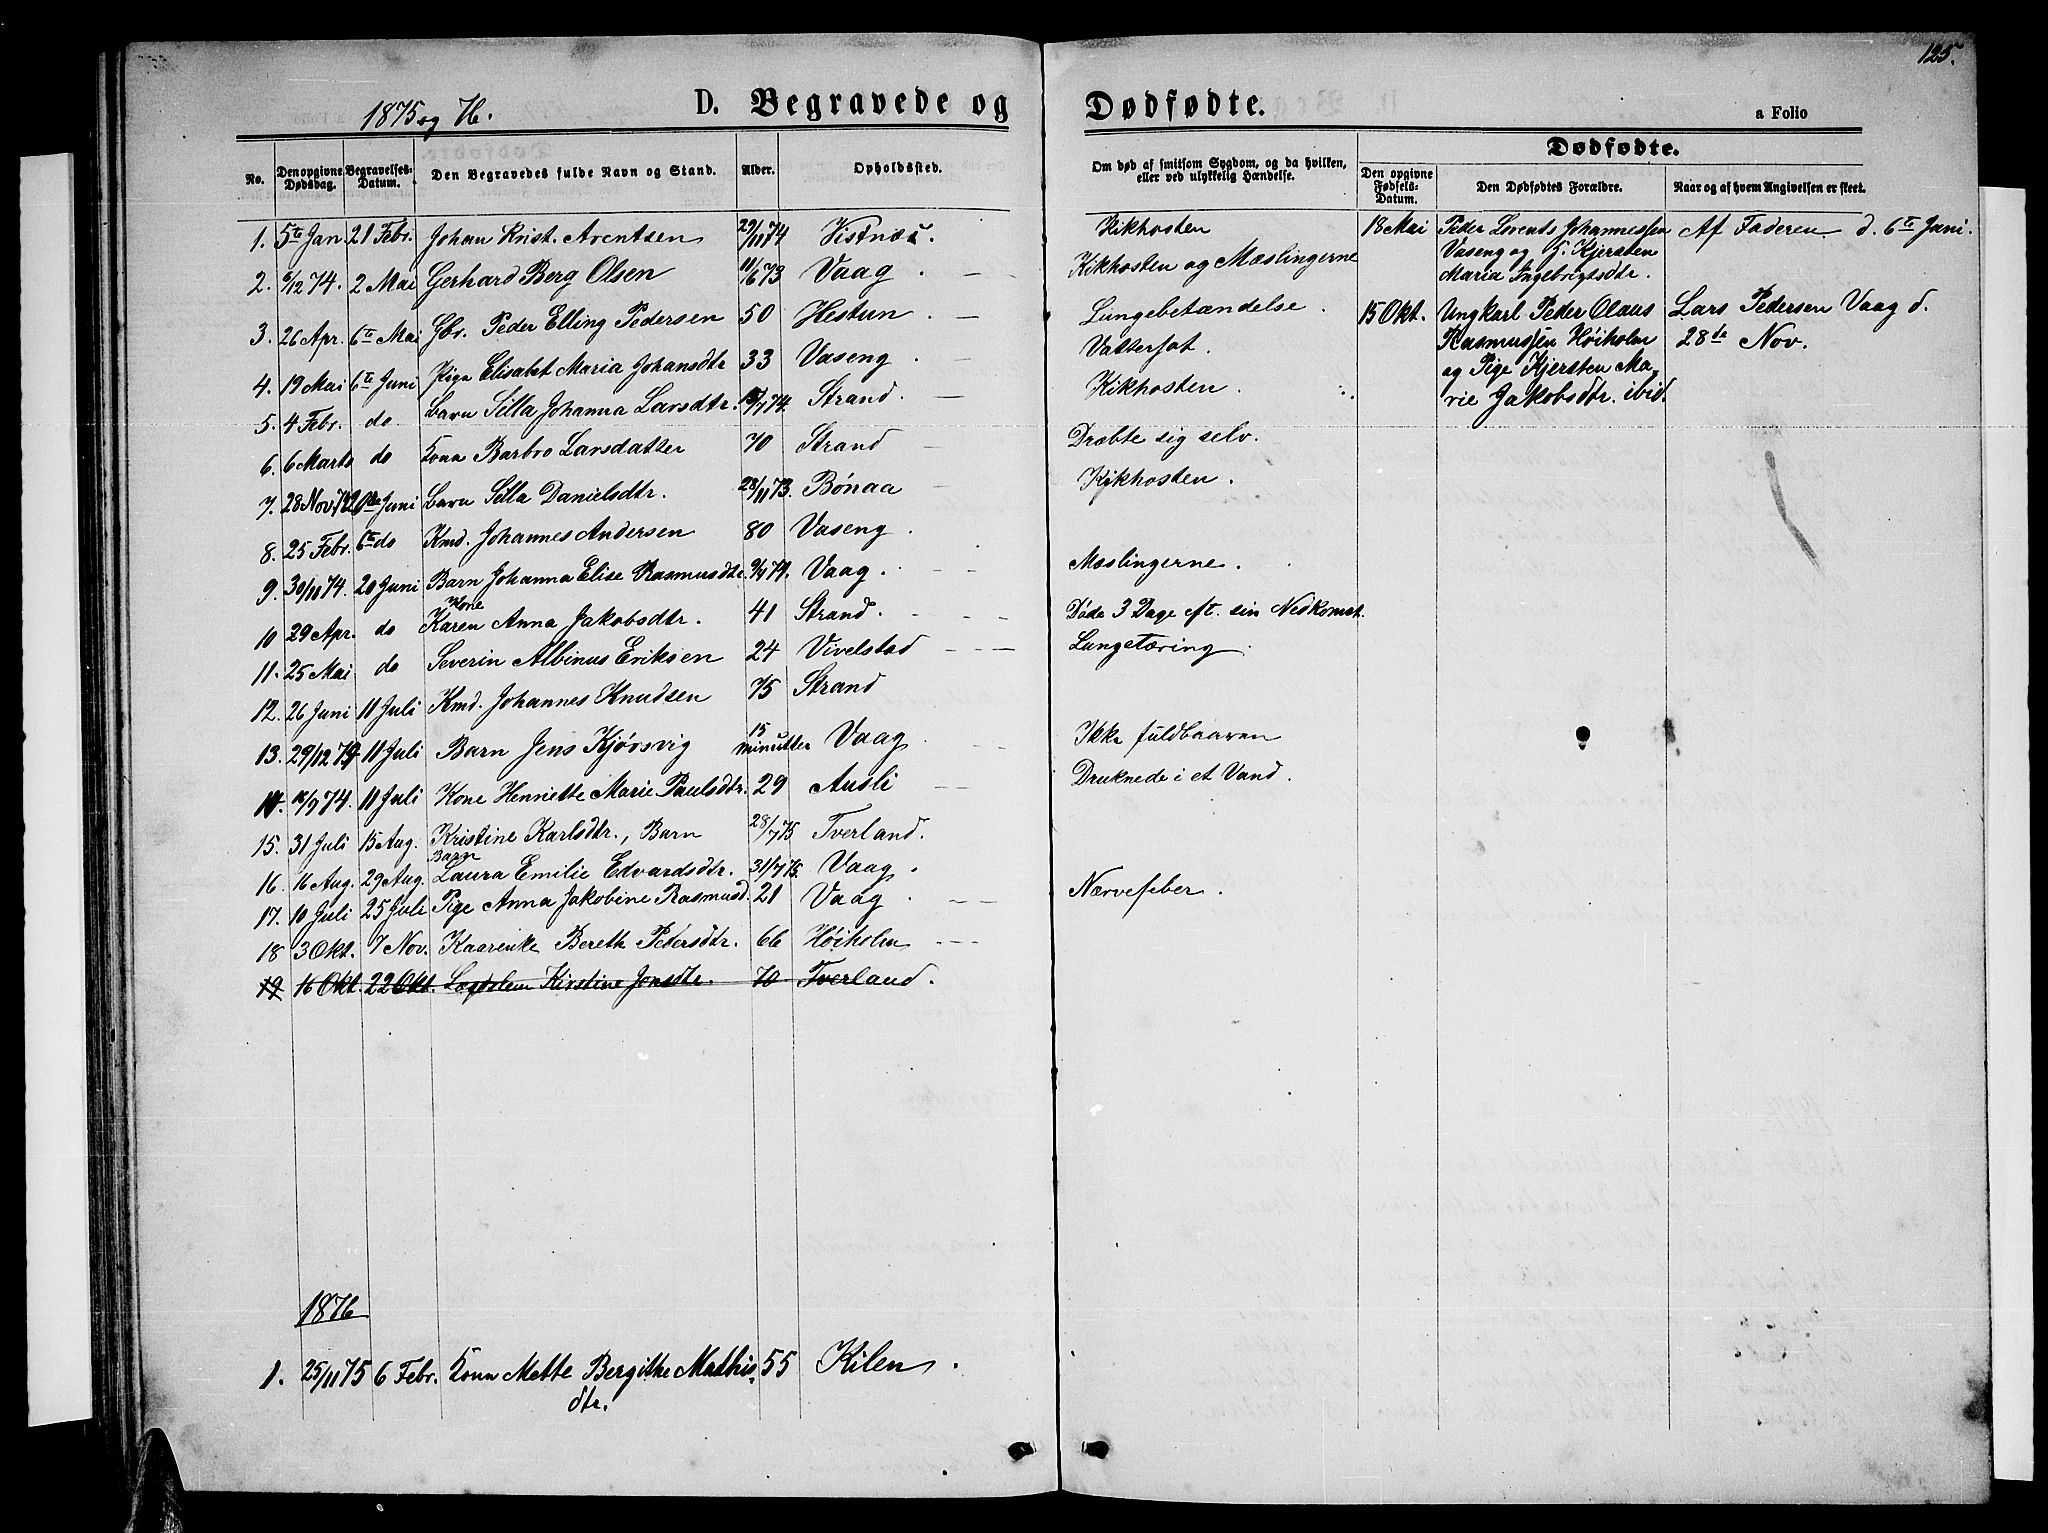 125.
1875 og 76. D. Begravede og Dødfødte. a Folio
Dødfødte.
No. Den opgivne Dødsdag. Begravelses-Datum. Den Begravedes fulde Navn og Stand. Alder. Opholdssted. Om død af smitsom Sygdom, og da hvilken, eller ved ulykkelig Hændelse. Den opgivne Fødsels-Datum. Den Dødfødtes Forældre. Naar og af hvem Angivelsen er skeet.
1. 5te Jan. 21 Febr. Johan Krist. Arentsen 29/11 74 Vistnæs. Kikhosten 18 Mai Peder Lorends Johannessen Af Faderen d. 6te Juni.
Vaseng og H. Kjersten
Maria Ingebrigtsdtr.
2. 6/12 74. 2 Mai Gerhard Berg Olsen 11/6 73 Vaag. Kikhosten og Mæslingerne
3. 26 Apr. 6te Mai Gbr. Peder Elling Pedersen 50 Hestun. Lungebetændelse. 15 Okt. Ungkarl Peder Olaus Lars Pedersen Vaag d.
Rasmussen Høiholm 28de Nov.
4. 19 Mai 6te Juni Pige Elisabet Maria Johansdtr 33 Vaseng. Vattersot.
og Pige Kjersten Ma-
5. 4 Febr. do Barn Silla Johanna Larsdtr. 74. Strand. Kikhosten.
rie Jakobsdtr. ibid.
6. 6 Marts do Kone Barbro Larsdatter 70 Strand Dræbte sig selv.
7. 28 Nov. 74 20de Juni Barn Silla Danielsdtr. 28/11 73. Bønaa Kikhosten.
8. 25 Febr. 6te do Kmd. Johannes Andersen 80 Vaseng.
9. 30/11 74. 20 Juni Barn Johanna Elise Rasmusdtr. 74. Vaag. Mæslingerne.
10 29 Apr. do Kone Karen Anna Jakobsdtr. 41 Strand. Døde 3 Dage eft. sin Nedkomst.
11. 25 Mai do Severin Albinus Eriksen 24 Vivelstad Lungetæring.
12. 26 Juni 11 Juli Kmd. Johannes Knudsen 75 Strand
13. 29/12 74 11 Juli Barn Jens Kjørsvig 15 minutter Vaag Ikke fuldbaaren
14. 74. 11 Juli Kone Henriette Marie Paulsdtr. 29 Ausli Druknede i et Vand.
15. 31 Juli 15 Aug. Kristine Karlsdtr., Barn 28/7 75 Tverland.
16. 16 Aug. 29 Aug. Barn Laura Emilie Edvardsdtr. 31/7 75. Vaag.
17. 10 Juli 25 Juli Pige Anna Jakobine Rasmusd. 21 Vaag. Nervefeber.
18 3 Okt. 7 Nov. Kaarenke Bereth Petersdtr. 66 Høiholm
19 16 Okt. 22 Okt. Lægdslem Kirstine Jonsdtr. 70 Tverland.
1876
1. 25/11 75 6 Febr. Kone Mette Bergithe Mathis- 55 Kilen.
dtr.